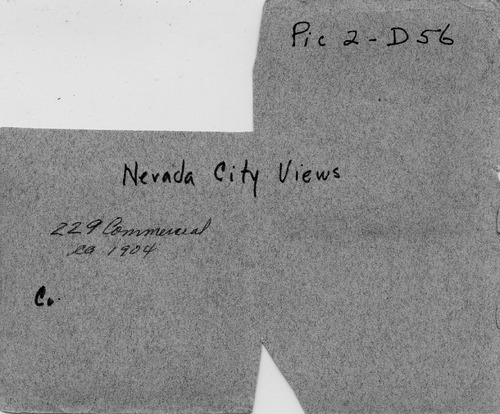 Pic 2 - D56
Nevada City Views
229 Commercial
ca 1904
Co.